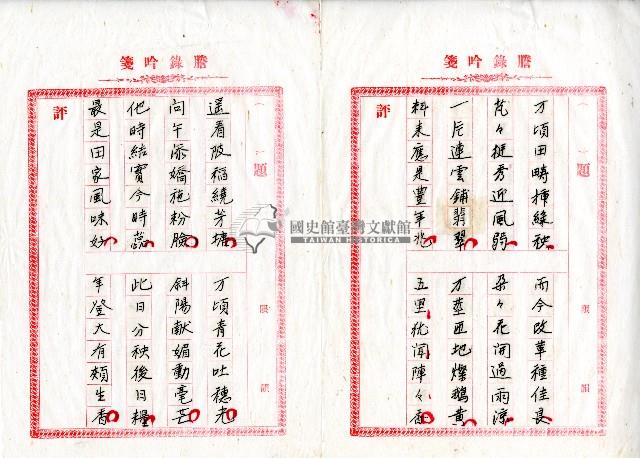 謄錄吟箋
題
限 韻
万頃田疇插綠秧
而今改革種佳良
芃々挺秀迎風弱
朶々花開過雨涼
一片連雲鋪翡翠
万莖匝地燦鵝黃
料來應是豐年兆
五里花聞陣々香
評
謄錄吟箋
題
限 韻
遥看陂稻繞芳塘
万頃青花吐穗光
向午添嬌施粉臉
斜陽献媚動毫芒
他時結實今時蕊
此日分秧後日糧
最是田家風味好
年登大有頰生香
評
國史館臺灣文獻館
TAIWAN HISTORICA